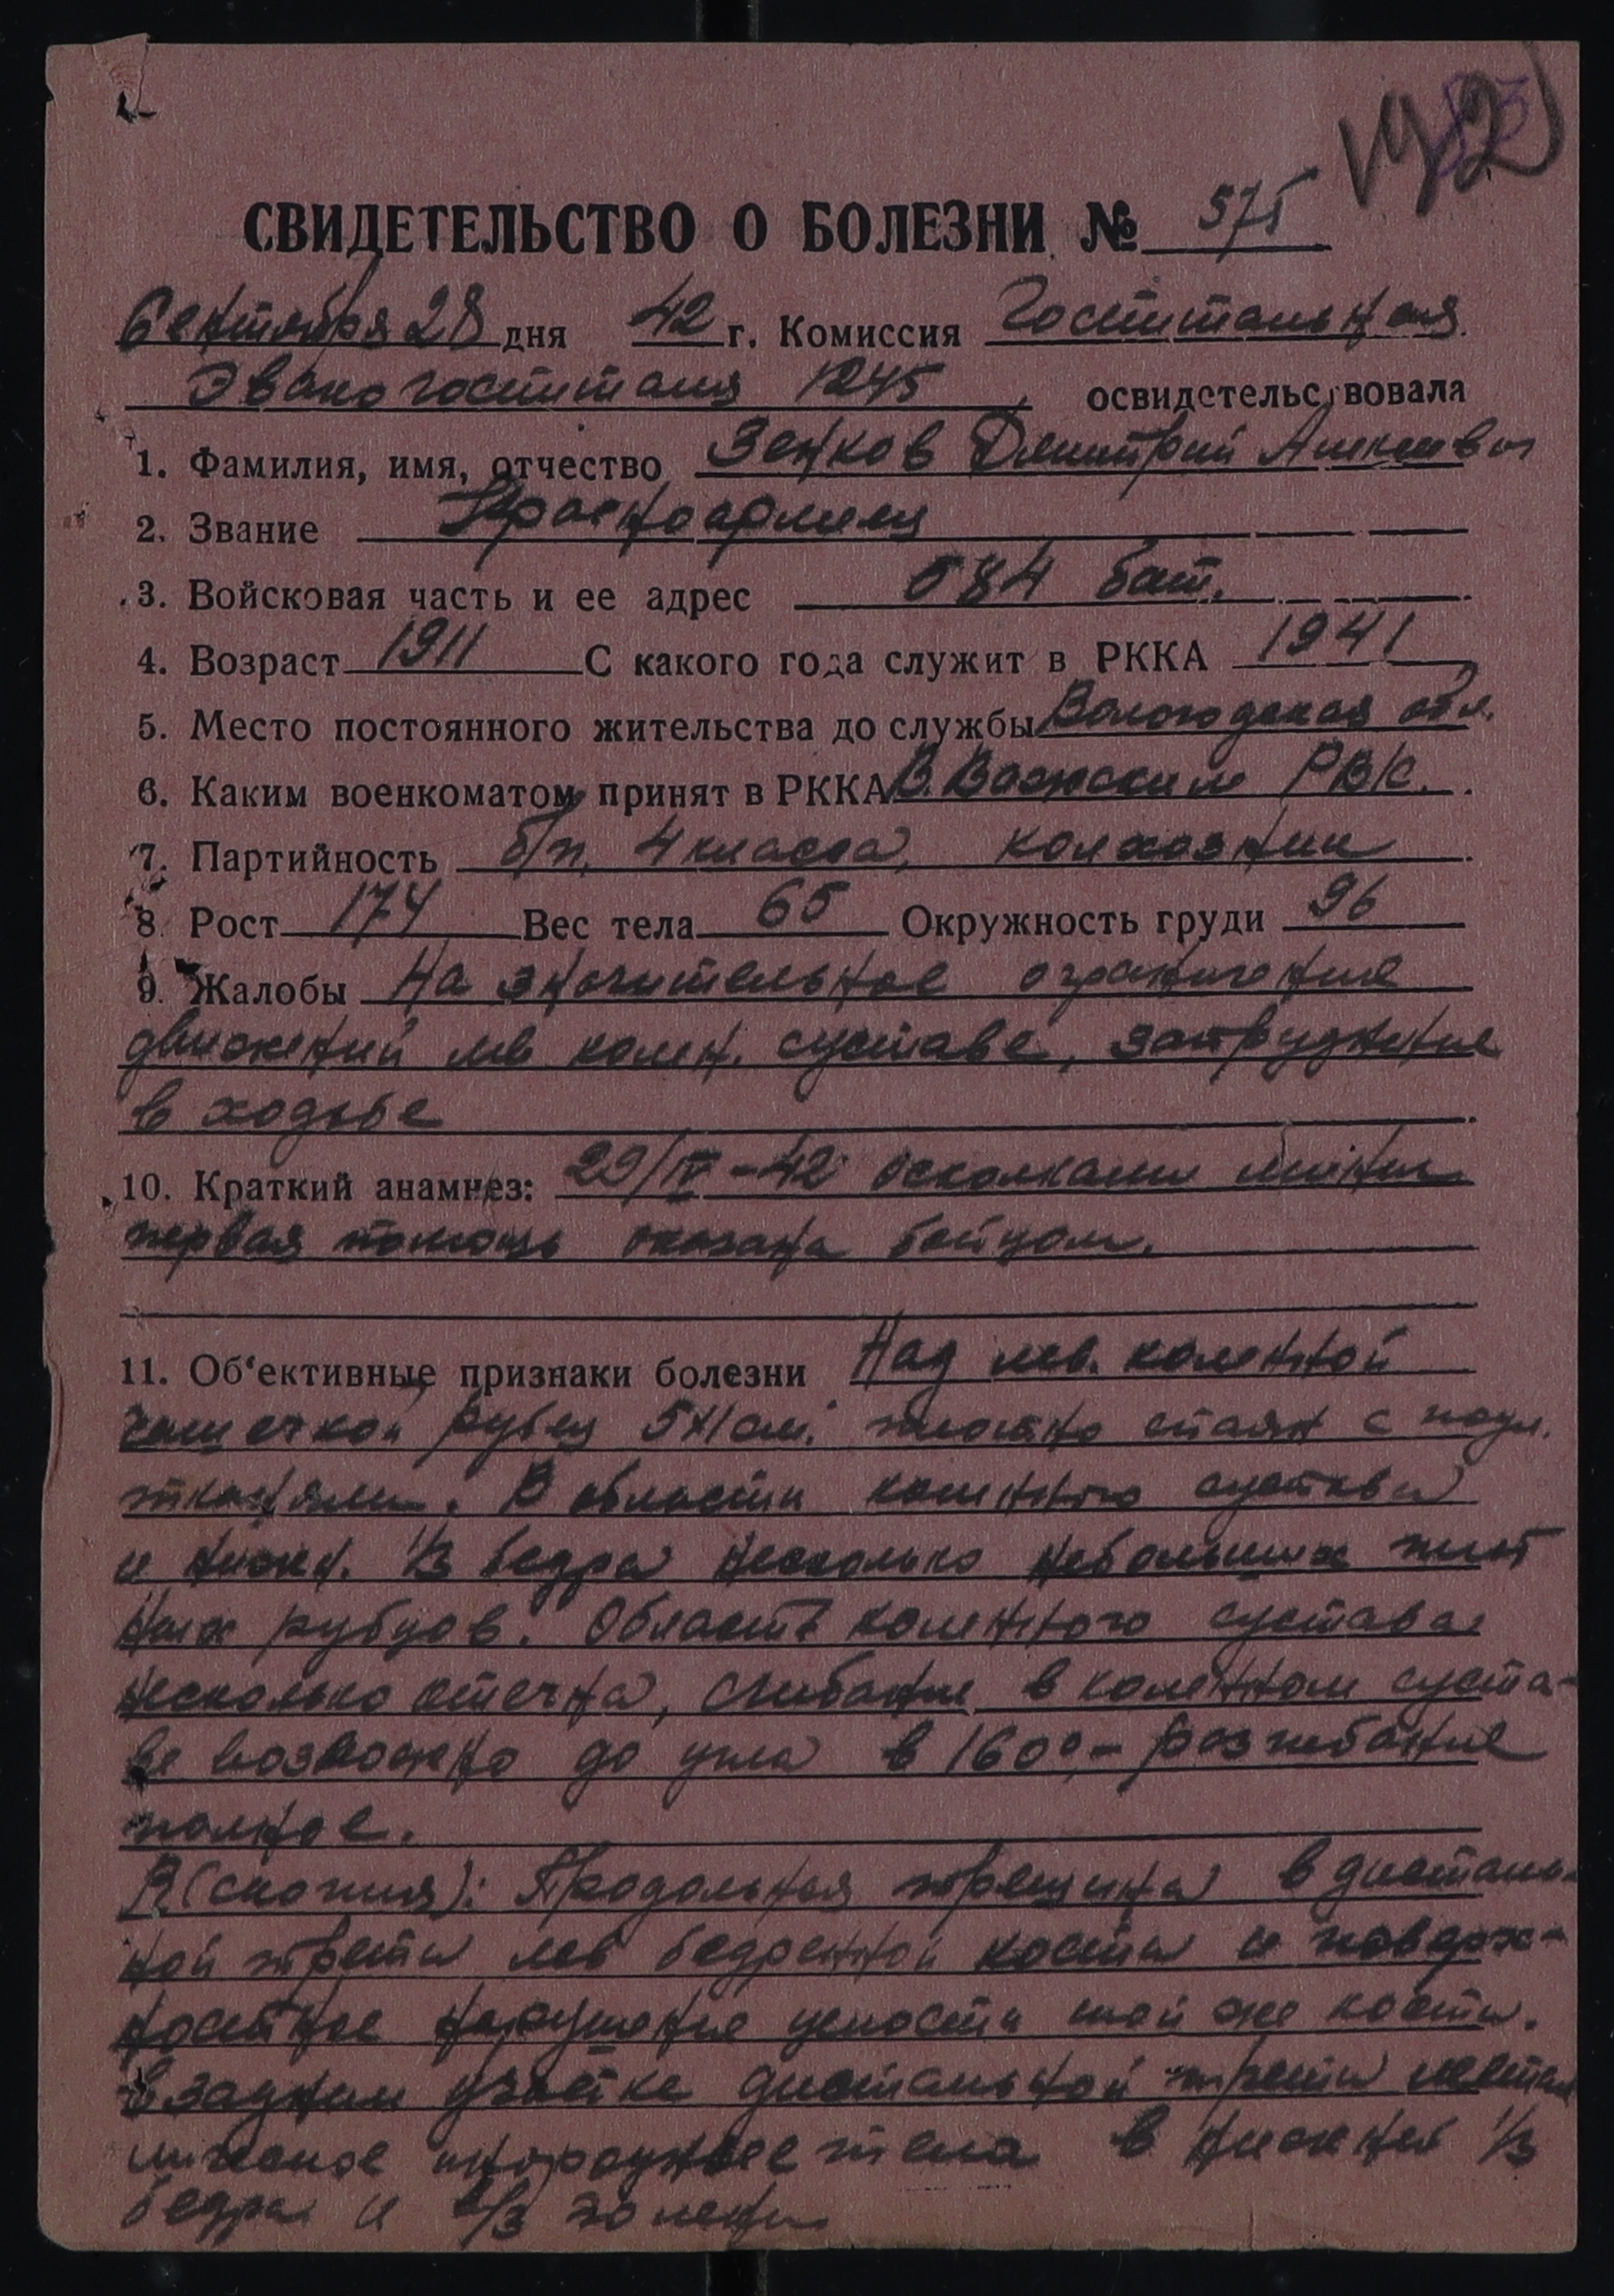 192
СВИДЕТЕЛЬСТВО О БОЛЕЗНИ № 575
Сентября 28 дня 42 г. Комиссия Госпитальная
Эвакогоспиталя 1245 освидетельствовала
1. Фамилия, имя, отчество Зенков Дмитрий
2. Звание Красноармеец
3. Войсковая часть и ее адрес 084 бат.
4. Возраст 1911 С какого года служит в РККА 1941
5. Место постоянного жительства до службы Вологодская обл.
6. Каким военкоматом принят в РККА В. Важским РВК.
7. Партийность б/п, 4 класса, колхозник
8. Рост 174 Вес тела 65 Окружность груди 96
9. Жалобы На значительное ограничение
движений лев колен. суставе, затруднение
в ходьбе
10. Краткий анамнез: 29/IV-42 осколками мины
первая помощь оказана бойцом.
11. Об'ективные признаки болезни Над лев. коленной
чашечкой рубец 5х1 см. плотно спаян с подл.
тканями. В области коленного сустава
и нижн. 1/3 бедра несколько небольших плот
ных рубцов. Область коленного сустава
несколько отечна, сгибание в коленном суста-
ве возможно до угла в 160°- разгибание
полное.
R(скопия): Продольная трещина в дисталь-
ной трети лев бедренной кости и поверх-
ностное нарушение целости той же кости.
В заднем участке дистальной трети метал
лическое инородное тела в нижней 1/3
бедра и в/3 голени